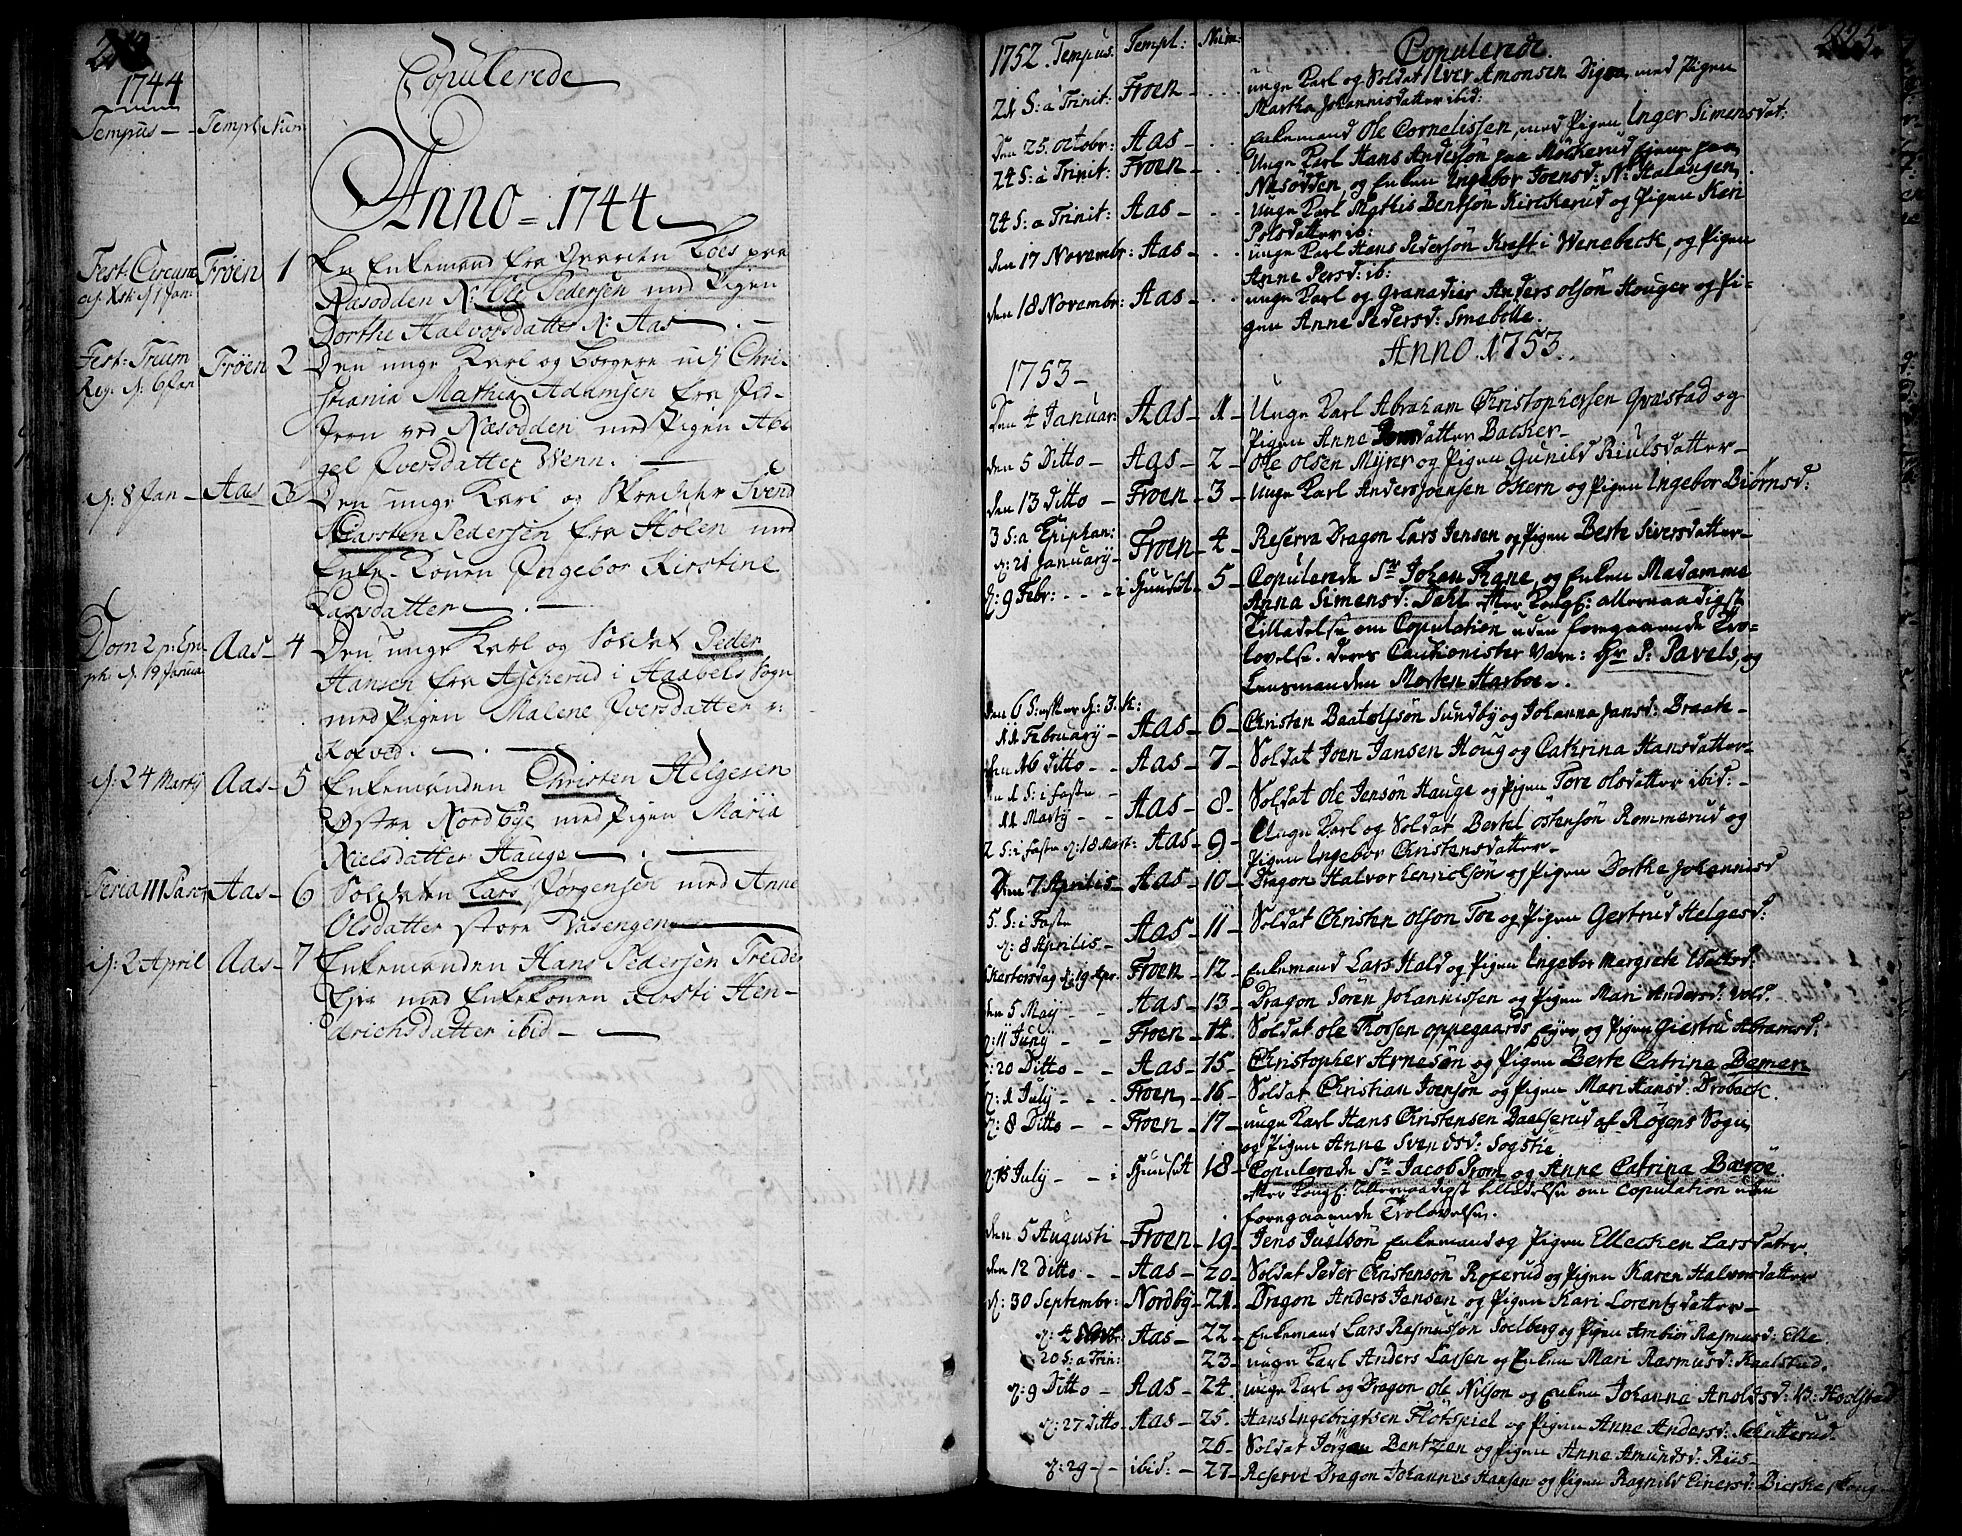 1744
Copulerede
Tempus Templ: Num
Anno 1744
Fest: Circumc Frøen 1 En Enkemand fra Gaarden Toes paa
Næsodden N: Ole Pedersen med Pigen
Dorthe Halvorsdatter N: Aas
Fest: Trium Frøen 2 Den unge Karl og Borgere udj Chri-
Reg: d: 6 Jan stiania Mathia Adamsen fra
ved Næsodden med Pigen Abi-
gel Iversdatter Wenn.
d: 8 Jan Aas 3 Den unge Karl og Skredder Svend
Carsten Pedersen fra Holen med
Enke-Konen Ingebor Kirstine
Larsdatter
Dom 2 p: Epi- Aas 4 Den unge Karl og Soldat Peder
ph: d: 19 Janua Hansen fra Ascherud i Haabøls Sogn
med Pigen Malene Iversdatter
d: 24 Martij Aas 5 Enkemanden Christen Helgesen
Østre Nordbye med Pigen Maria
Nielsdatter Hauge
Feria III Pasc Aas 6 Soldaten Lars Jørgensen med Anne
Olsdatter store Vasengen
d: 2 April Aas 7 Enkemanden Hans Pedersen Treider
med Enkekonen Kersti Hen-
drichsdatter ibid
225
1752. Tempus. Templ: Num: Copulerede
21 S: à Trinit: Froen unge Karl og Soldat Iver Amonsen Digra, med Pigen
Martha Johannisdatter ibid:
Den 25 octobr: Aas Enkemand Ole Cornelissen, med Pigen Inger Simensdat:
24 S: à Trinit: Froen Unge Karl Hans Andersøn paa Möckerud
Næsödden, og Enken Ingebor Joensd: N: Halangen
24 S: a Trinit: Aas Unge Karl Mathis Bentsøn Kirckerud og Pigen Kari
Polsdatter ib:
den 17 Novembr: Aas unge Karl Hans Pedersön Kraft i Wenebeck, og Pigen
Anne Persd: ib:
den 18 Novembr: Aas unge Karl og Granadier Anders olsön Houger og Pi-
gen Anne Pedersd: Smebölle.
Anno 1753.
1753
Den 4 Januar: Aas 1 Unge Karl Abraham Christophersen Qvæstad og
Pigen Anne datter Backer
den 5 Ditto Aas 2 Ole Olsen Myrer og Pigen Gunild Riulsdatter
den 13 Ditto Froen 3 Unge Karl Anders Joensen Östern og Pigen Ingebor Biörnsd:
3 S: a Epiphan:
d: 21 Januarij Froen 4 Reserva Dragon Lars Jensen og Pigen Berte Siversdatter
d: 9 Febr: i Huuset 5 Copulerede Sr Johan Frane, og Enken Madamme
Anna Simensd: Dahl efter Kongl: allernaadigst
Tilladelse om Copulation uden foregaaende Tro-
lovelse. deres Cautionister vare: Hr P: Pavels, og
Lensmanden Morten Harboe.
Den 6 S:
11 February Aas 6 Christen Baatolfsön Sundby og Johanna Jansd: Braate
den 16 Ditto Aas 7 Soldat Joen Jansen Houg og Catrina Hansdatter
1 S: i Faste
11 Marty Aas 8 Soldat Ole Jensön Hauge og Pigen Tore olsdatter ibid:
2 S: i Faste d: 18 Mart: Aas 9 Unge Karl og Soldat Bertel östensön Rommerud og
Pigen Ingebor Christensdatter
Den 7 Aprilis Aas 10 Dragon Halvor Henricksön og Pigen Dorthe Johannisd
5. S: i Faste
d: 8 Aprilis Aas 11 Soldat Christen olsön Toe og Pigen Gertrud Helgesd:
Skiertorsdag d: 19 Apr: Froen 12 Enkemand Lars Hald og Pigen Ingebor Margrete
den 5 May Aas 13 Dragon Sören Johannissen og Pigen Mari Andersd: Vold.
d: 11 Juny Froen 14 Soldat Ole Thorsen oppegaards Eyer, og Pigen Giertru Abramsd:
d: 20 Ditto Aas 15 Christopher Arnesön og Pigen Berte Catrina Bemen
d: 1 July Froen 16 Soldat Christian Joensön og Pigen Mari Hansd: Dröback.
d: 8 Ditto Froen 17 unge Karl Hans Christensen Baalserud af Röjens Sogn,
og Pigen Anne Svendsd: Sogstie
d: 15 July i Huuset 18 Copulerede Sr Jacob Prom og Anne Catrina Basöe
efter Kongl: Allernaadigst tilladelse om Copulation uden
foregaaende Trolovelse.
den 5 Augusti Froen 19 Jens Juelsön Enkemand og Pigen Ellecken Larsdatter.
den 12 Ditto Aas 20 Soldat Peder Christensön Roxerud og Pigen Karen Halvorsdatter
d: 30 Septembr: Nordby 21 Dragon Anders Jansen og Pigen Kari Lorentzdatter
d: 4 Octobr: Aas 22 Enkemand Lars Rasmussön Solberg og Pigen Ambiör Rasmusd: Elle
20 S: a Trin: 23 unge Karl Anders Larsen og Enken Mari Rasmusd: Kaalstad.
d: 9 Ditto Aas 24 unge Karl og Dragon Ole Nilson og Enken Johanna Anoldsd:
d: 27 Ditto Aas 25 Hans Ingebrigtsen Flötspiel og Pigen Anne Andersd: Schutterud.
26 Soldat Jörgen Bentzen og Pigen Anne Amundsd: Riis
d: 29 ibid: 27 Reserve Dragon Johannes Hansen og Pigen Ragnild Einersd: